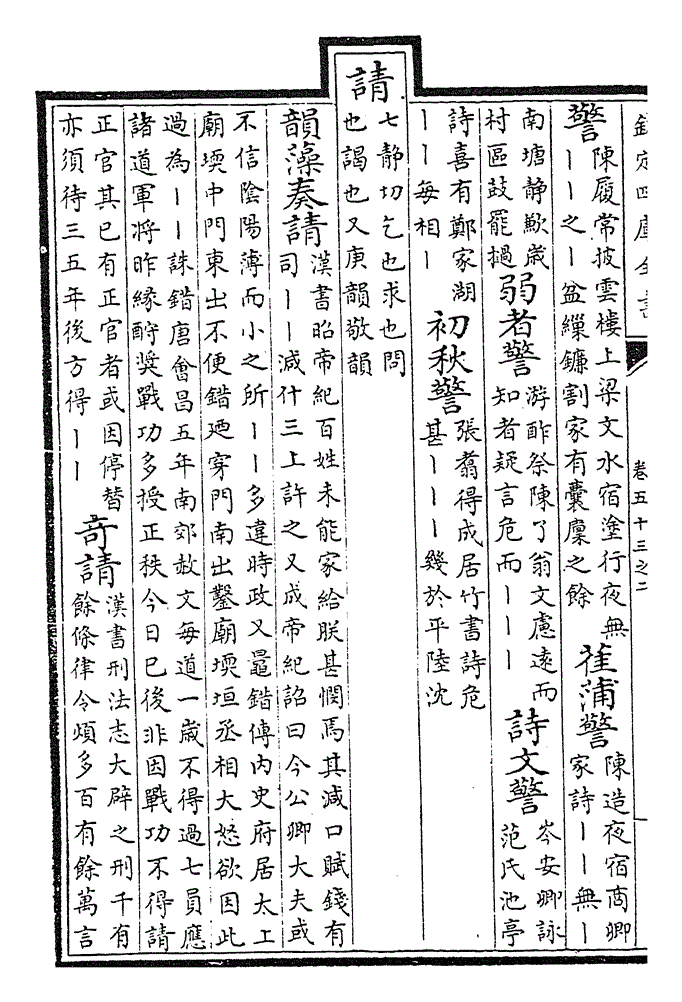 欽定四庫全書
卷五十三之二
警
陳履常披雲樓上梁文水宿塗行夜無
丨丨之丨盆繅鐮割家有囊廩之餘
萑蒲警
陳造夜宿商卿
家詩丨丨無丨
南塘静歗歲
村區鼓罷撾
弱者警
游酢祭陳了翁文慮遠而
知者疑言危而丨丨丨
詩文警
岑安卿詠
范氏池亭
詩喜有鄭家湖
丨丨每相丨
初秋警
張翥得成居竹書詩危
甚丨丨丨幾於平陸沈
請
七静切乞也求也問
也謁也又庚韻敬韻
韻藻奏請
漢書昭帝紀百姓未能家給朕甚憫焉其減口賦錢有
司丨丨減什三上許之又成帝紀詔曰今公卿大夫或
不信陰陽薄而小之所丨丨多違時政又鼂錯傳内史府居太上
廟堧中門東出不便錯廼穿門南出鑿廟堧垣丞相大怒欲因此
過為丨丨誅錯唐會昌五年南郊赦文每道一歲不得過七員應
諸道軍將昨緣酧奬戰功多授正秩今日已後非因戰功不得請
正官其已有正官者或因停替
亦須待三五年後方得丨丨
奇請
漢書刑法志大辟之刑千有
餘條律令煩多百有餘萬言